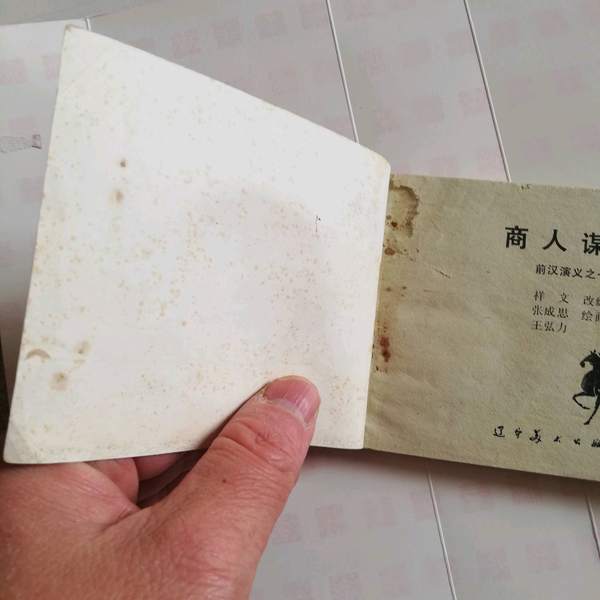 商人谋
前汉演义之
祥文 改
张成思 绘画
王弘力
辽宁美术出版